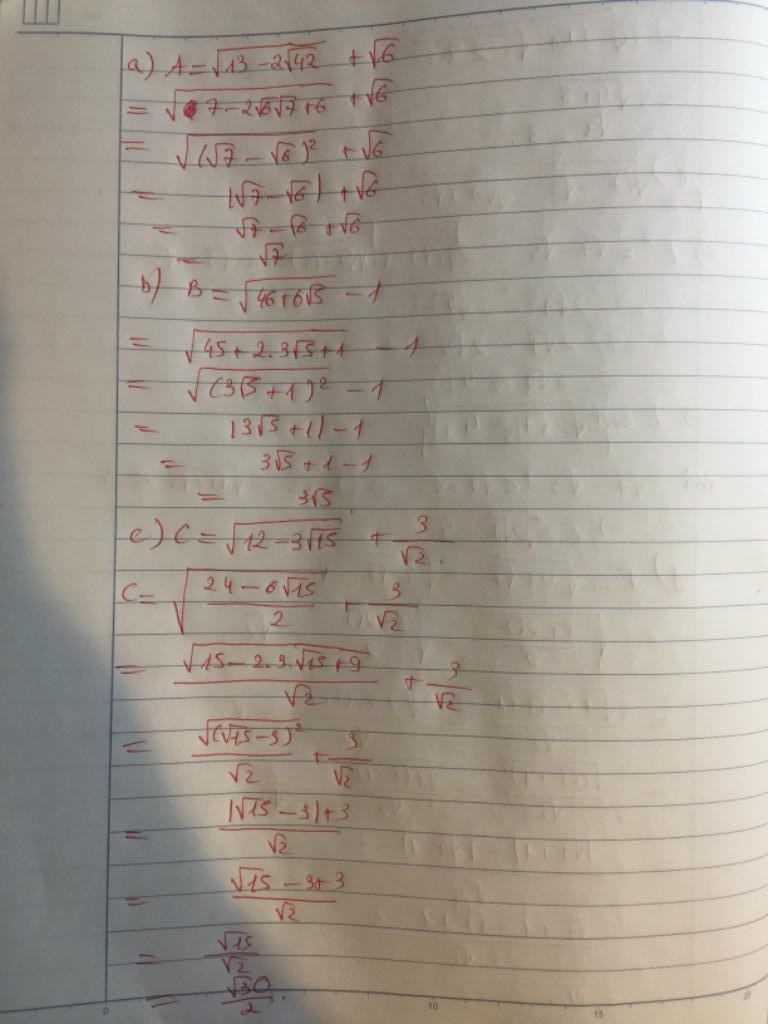 a) A = √(13 - 2√42) + √6
= √(7 - 2√6√7 + 6) + √6
= √((√7 - √6)²) + √6
= |√7 - √6| + √6
= √7 - √6 + √6
= √7
b) B = √(46 + 6√5) - 1
= √(45 + 2.3√5 + 1) - 1
= √((3√5 + 1)²) - 1
= |3√5 + 1| - 1
= 3√5 + 1 - 1
= 3√5
c) C = √(12 - 3√15) + 3/√2
C = √((24 - 6√15)/2) + 3/√2
= √(15 - 2.3.√15 + 9)/√2 + 3/√2
= √((√15 - 3)²)/√2 + 3/√2
= (|√15 - 3| + 3)/√2
= (√15 - 3 + 3)/√2
= √15/√2
= √30/2
0 5 10 15 20